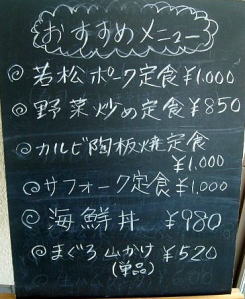 おすすめメニュー
◎若松ポーク定食¥1,000
◎野菜炒め定食¥850
◎カルビ陶板焼定食
¥1,000
◎サフォーク定食¥1,000
◎海鮮丼 ¥980
◎まぐろ山かけ¥520
(単品)